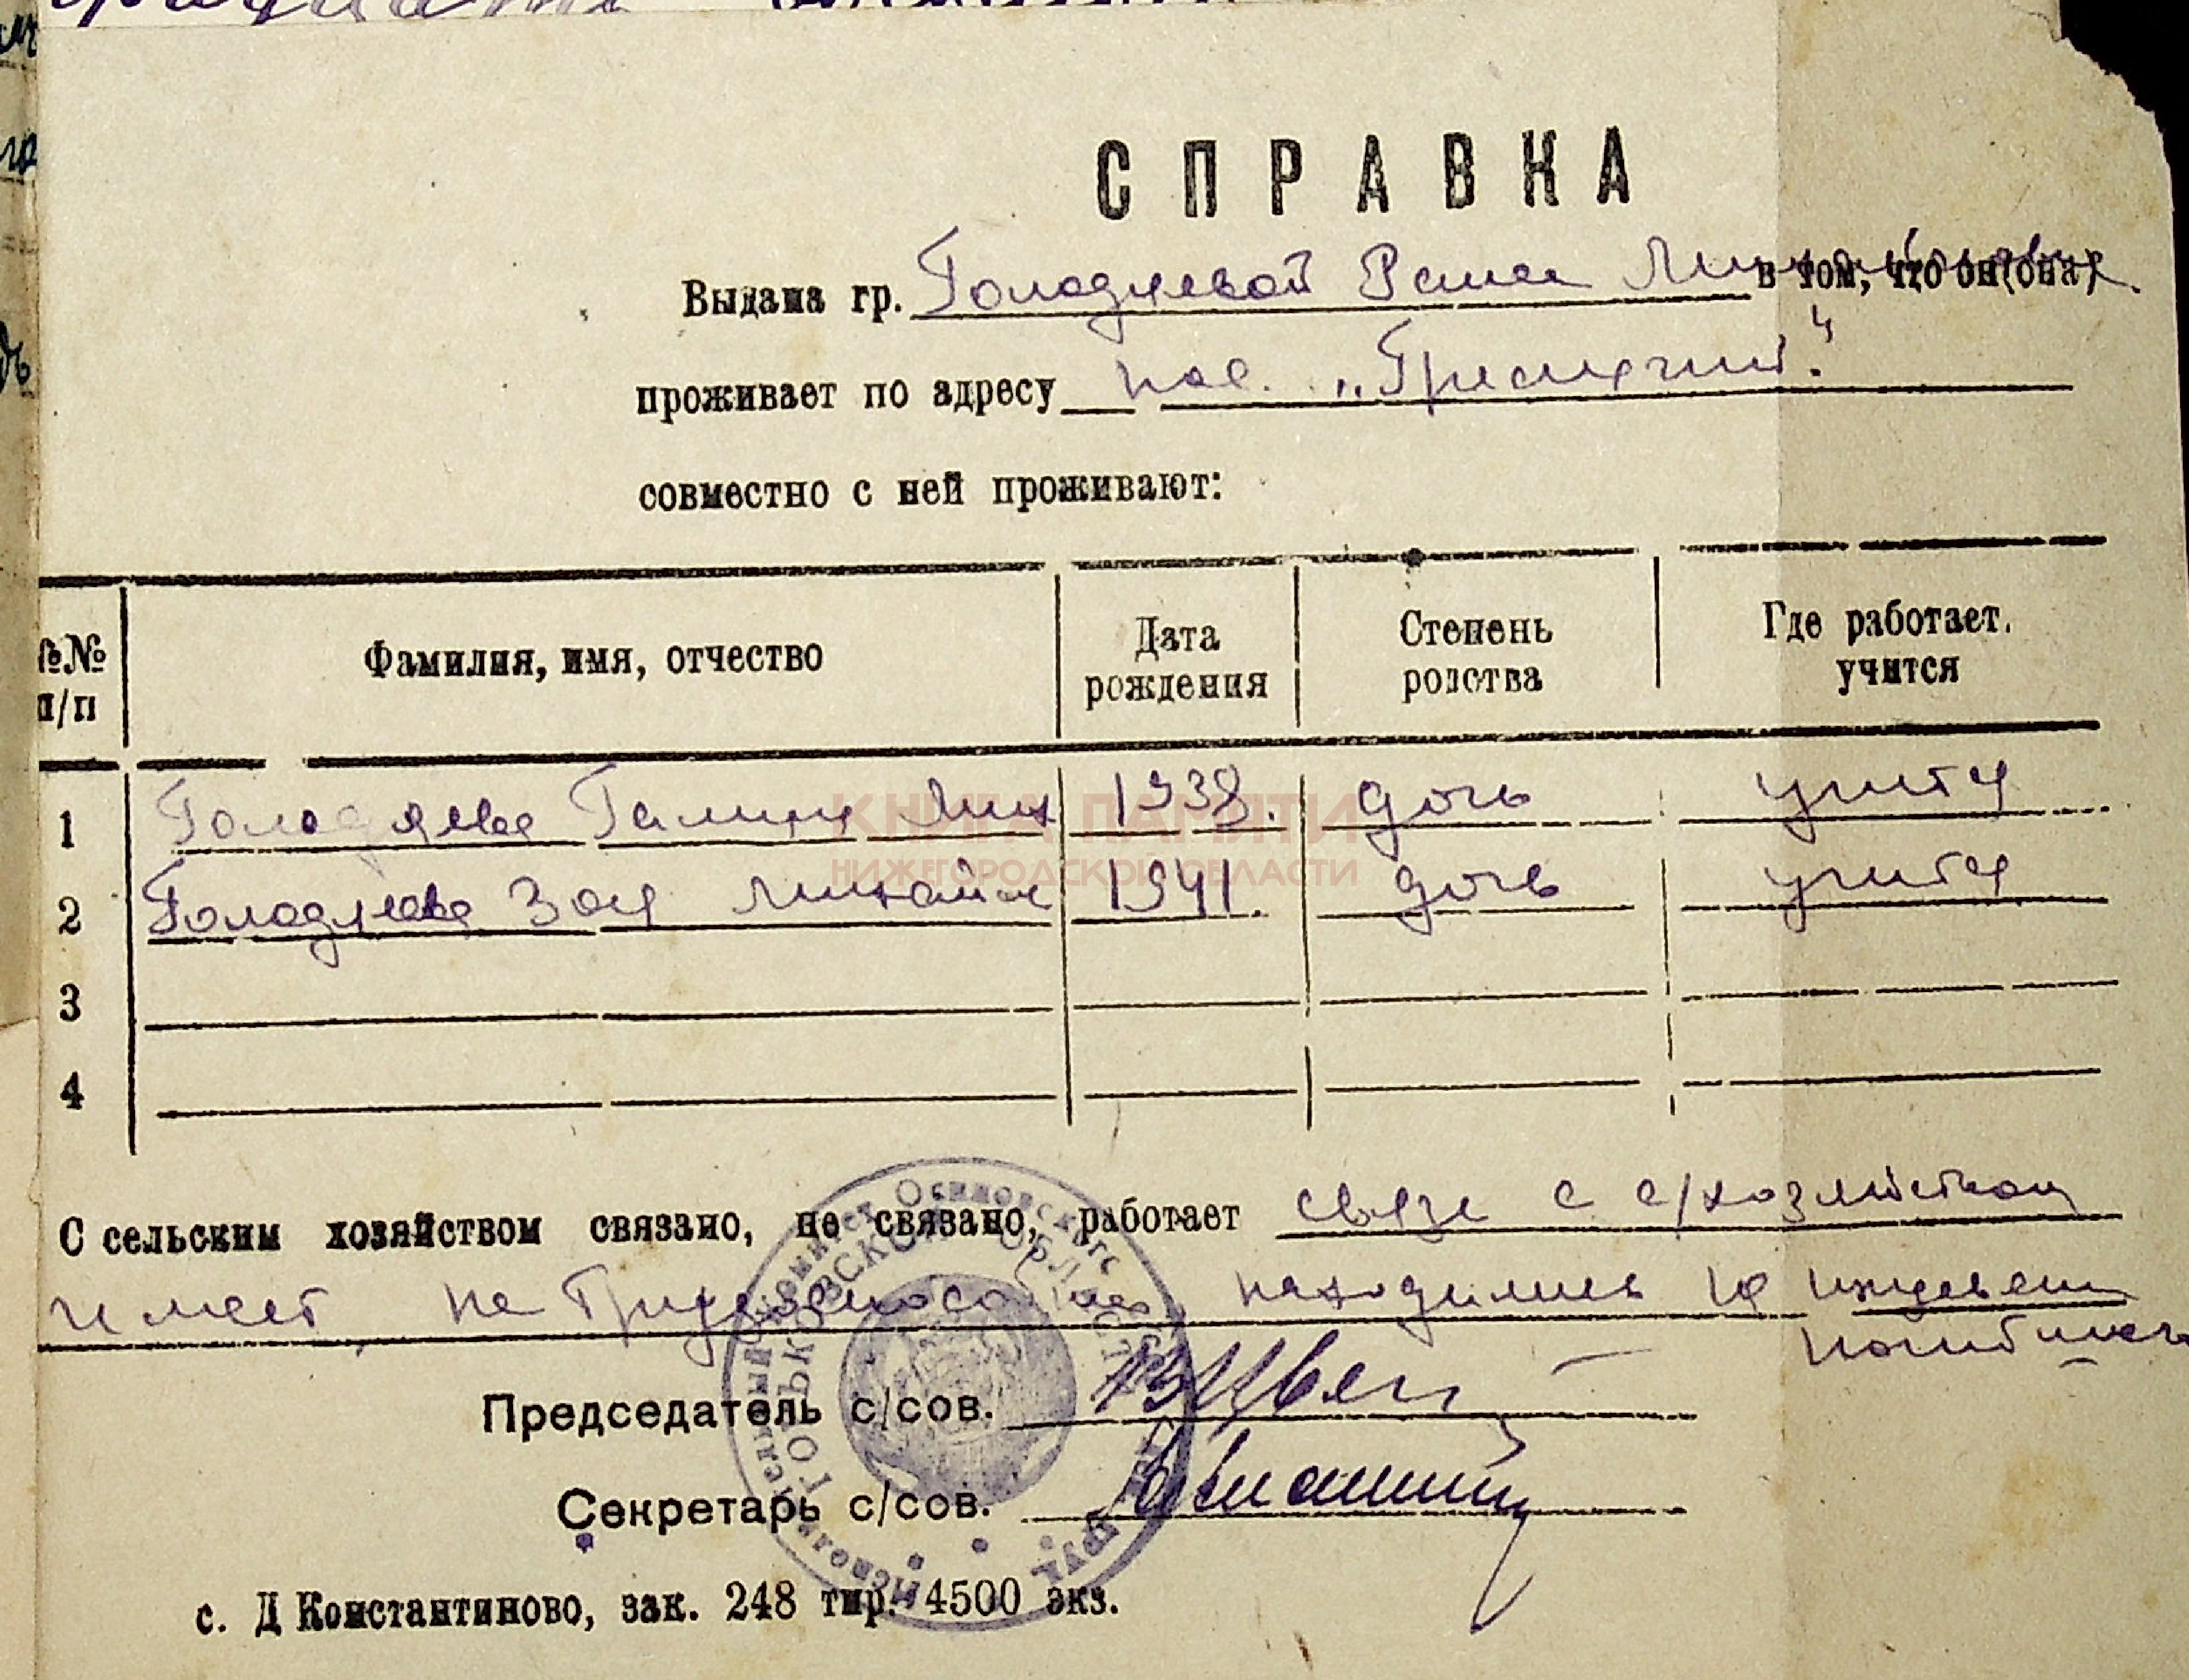 СПРАВКА
Выдана гр. Голодяевой в том, что он(она)
проживает по адресу пос.
совместно с ней проживают:
№№ п/п Фамилия, имя, отчество Дата рождения Степень родства Где работает. учится
1 Голодяева Галина Мих 1938. дочь учится
2 Голодяева Зоя Михайл 1941. дочь учится
3
4
КНИГА ПАМЯТИ
НИЖЕГОРОДСКОЙ ОБЛАСТИ
С сельским хозяйством связано, не связано, работает связь с с/хозяйством
имеет, находились на
Председатель с/сов.
Секретарь с/сов.
с. Д Константиново, зак. 248 тир. 4500 экз.
ГОРЬКОВСКОЙ ОБЛАСТИ